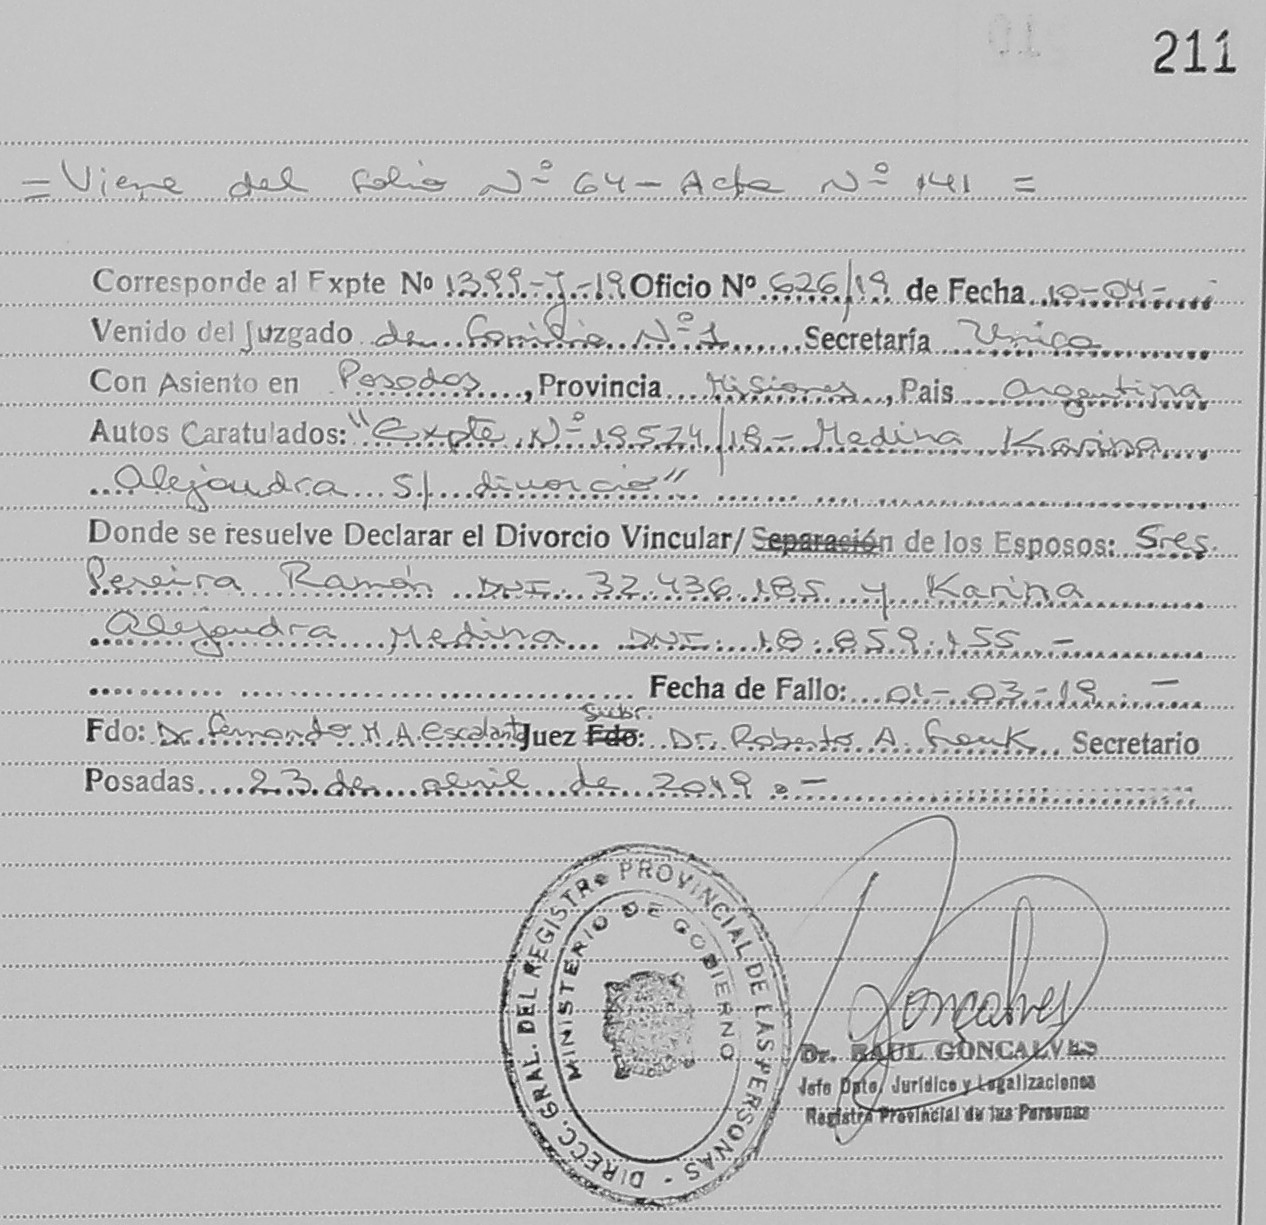 211
= Viene del folio Nº 64 - Acta Nº 141 =
Corresponde al Expte Nº 1399-J-19 Oficio Nº 626/19 de Fecha 10-04-
Venido del Juzgado de Familia Nº 1 Secretaría Unica
Con Asiento en Posadas, Provincia Misiones, Pais Argentina
Autos Caratulados: "Expte Nº 19524/18 - Medina Karina
Alejandra S/ divorcio"
Donde se resuelve Declarar el Divorcio Vincular/Separación de los Esposos: Sres.
Pereira Ramón DNI 32.436.185 y Karina
Alejandra Medina DNI: 18.859.155 -
Fecha de Fallo: 01-03-19 -
Subr.
Fdo: Dr. Fernando M. A. Escalante Juez Fdo: Dr. Roberto A. Secretario
Posadas 23 de abril de 2019.-
DIRECC. GRAL. DEL REGISTRO PROVINCIAL DE LAS PERSONAS -
MINISTERIO DE GOBIERNO
Goncalves
Dr. RAUL GONCALVES
Jefe Dpto. Jurídico y Legalizaciones
Registro Provincial de las Personas